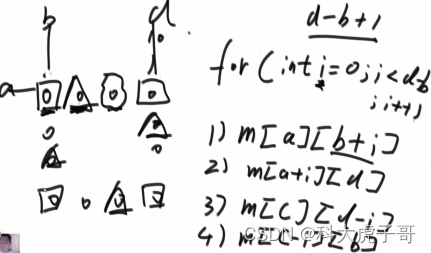 b
d
d-b+1
a
for (int i=0;i<d-b
;i++)
1) m[a][b+i]
2) m[a+i][d]
3) m[c][d-i]
4) m[c-i][b]
CSDN @科大虎子哥